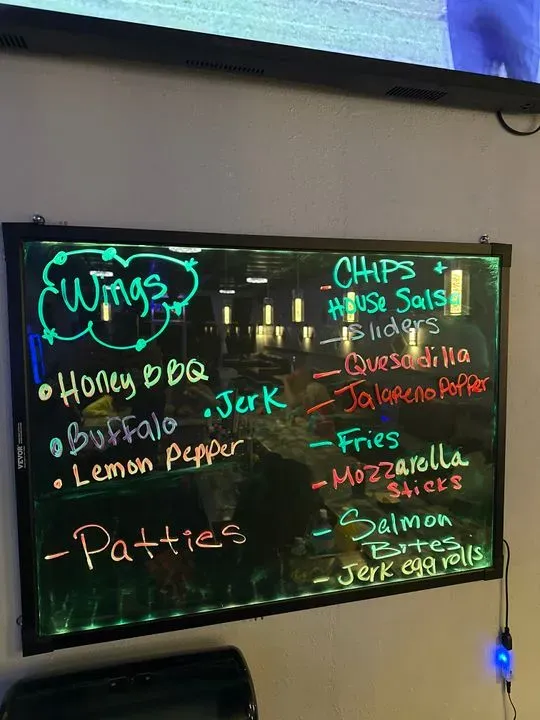 Wings
• Honey BBQ
• Jerk
• Buffalo
• Lemon Pepper
- Patties
- CHIPS +
House Salsa
- Sliders
- Quesadilla
- Jalapeno Popper
- Fries
- Mozzarella
Sticks
- Salmon
Bites
- Jerk egg rolls
VEVOR